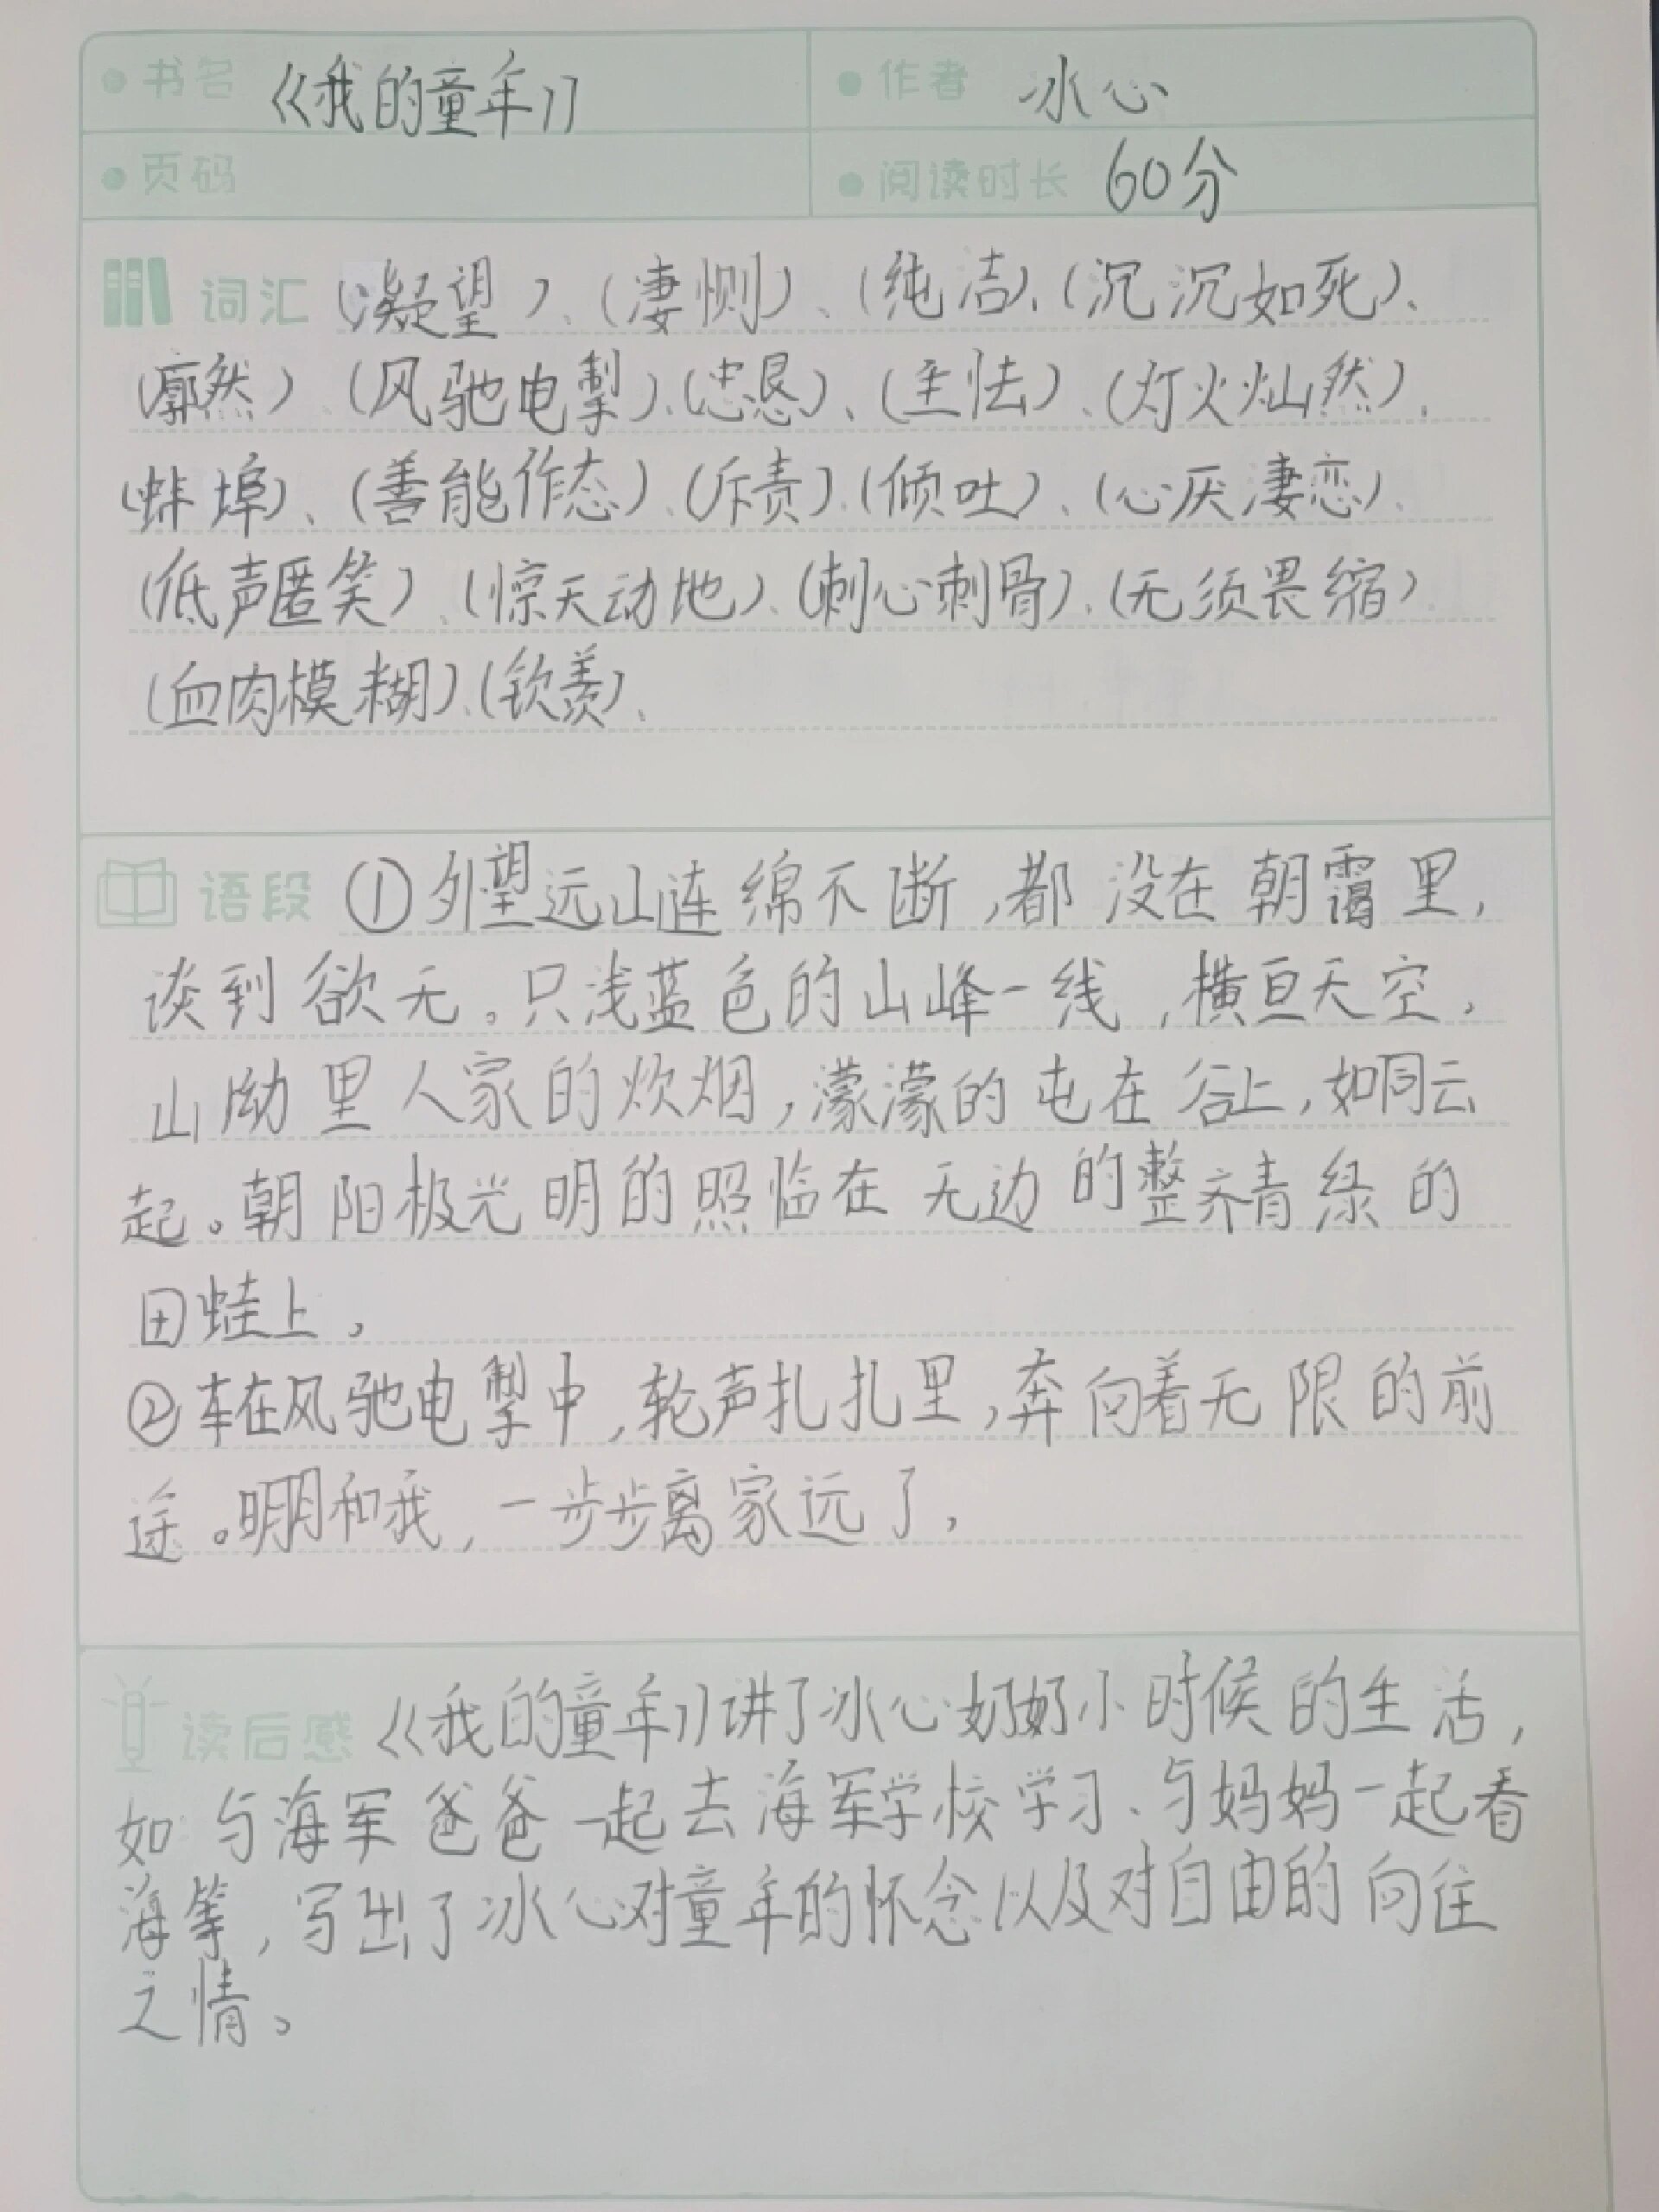 书名 《我的童年》 作者 冰心
页码 阅读时长 60分
词汇 (凝望)、(凄恻)、(纯洁)、(沉沉如死)、
(廓然)、(风驰电掣)、(忠恳)、(主怯)、(灯火灿然)、
(蚌埠)、(善能作态)、(斥责)、(倾吐)、(心厌凄恋)、
(低声匿笑)、(惊天动地)、(刺心刺骨)、(无须畏缩)
(血肉模糊)、(钦羡)、
语段 ①外望远山连绵不断,都没在朝霭里,
谈到欲无。只浅蓝色的山峰一线,横亘天空,
山坳里人家的炊烟,濛濛的屯在谷上,如同云
起。朝阳极光明的照临在无边的整齐青绿的
田蛙上,
②车在风驰电掣中,轮声扎扎里,奔向着无限的前
途。明月和我,一步步离家远了,
读后感 《我的童年》讲了冰心奶奶小时候的生活,
如与海军爸爸一起去海军学校学习、与妈妈一起看
海等,写出了冰心对童年的怀念以及对自由的向往
之情。